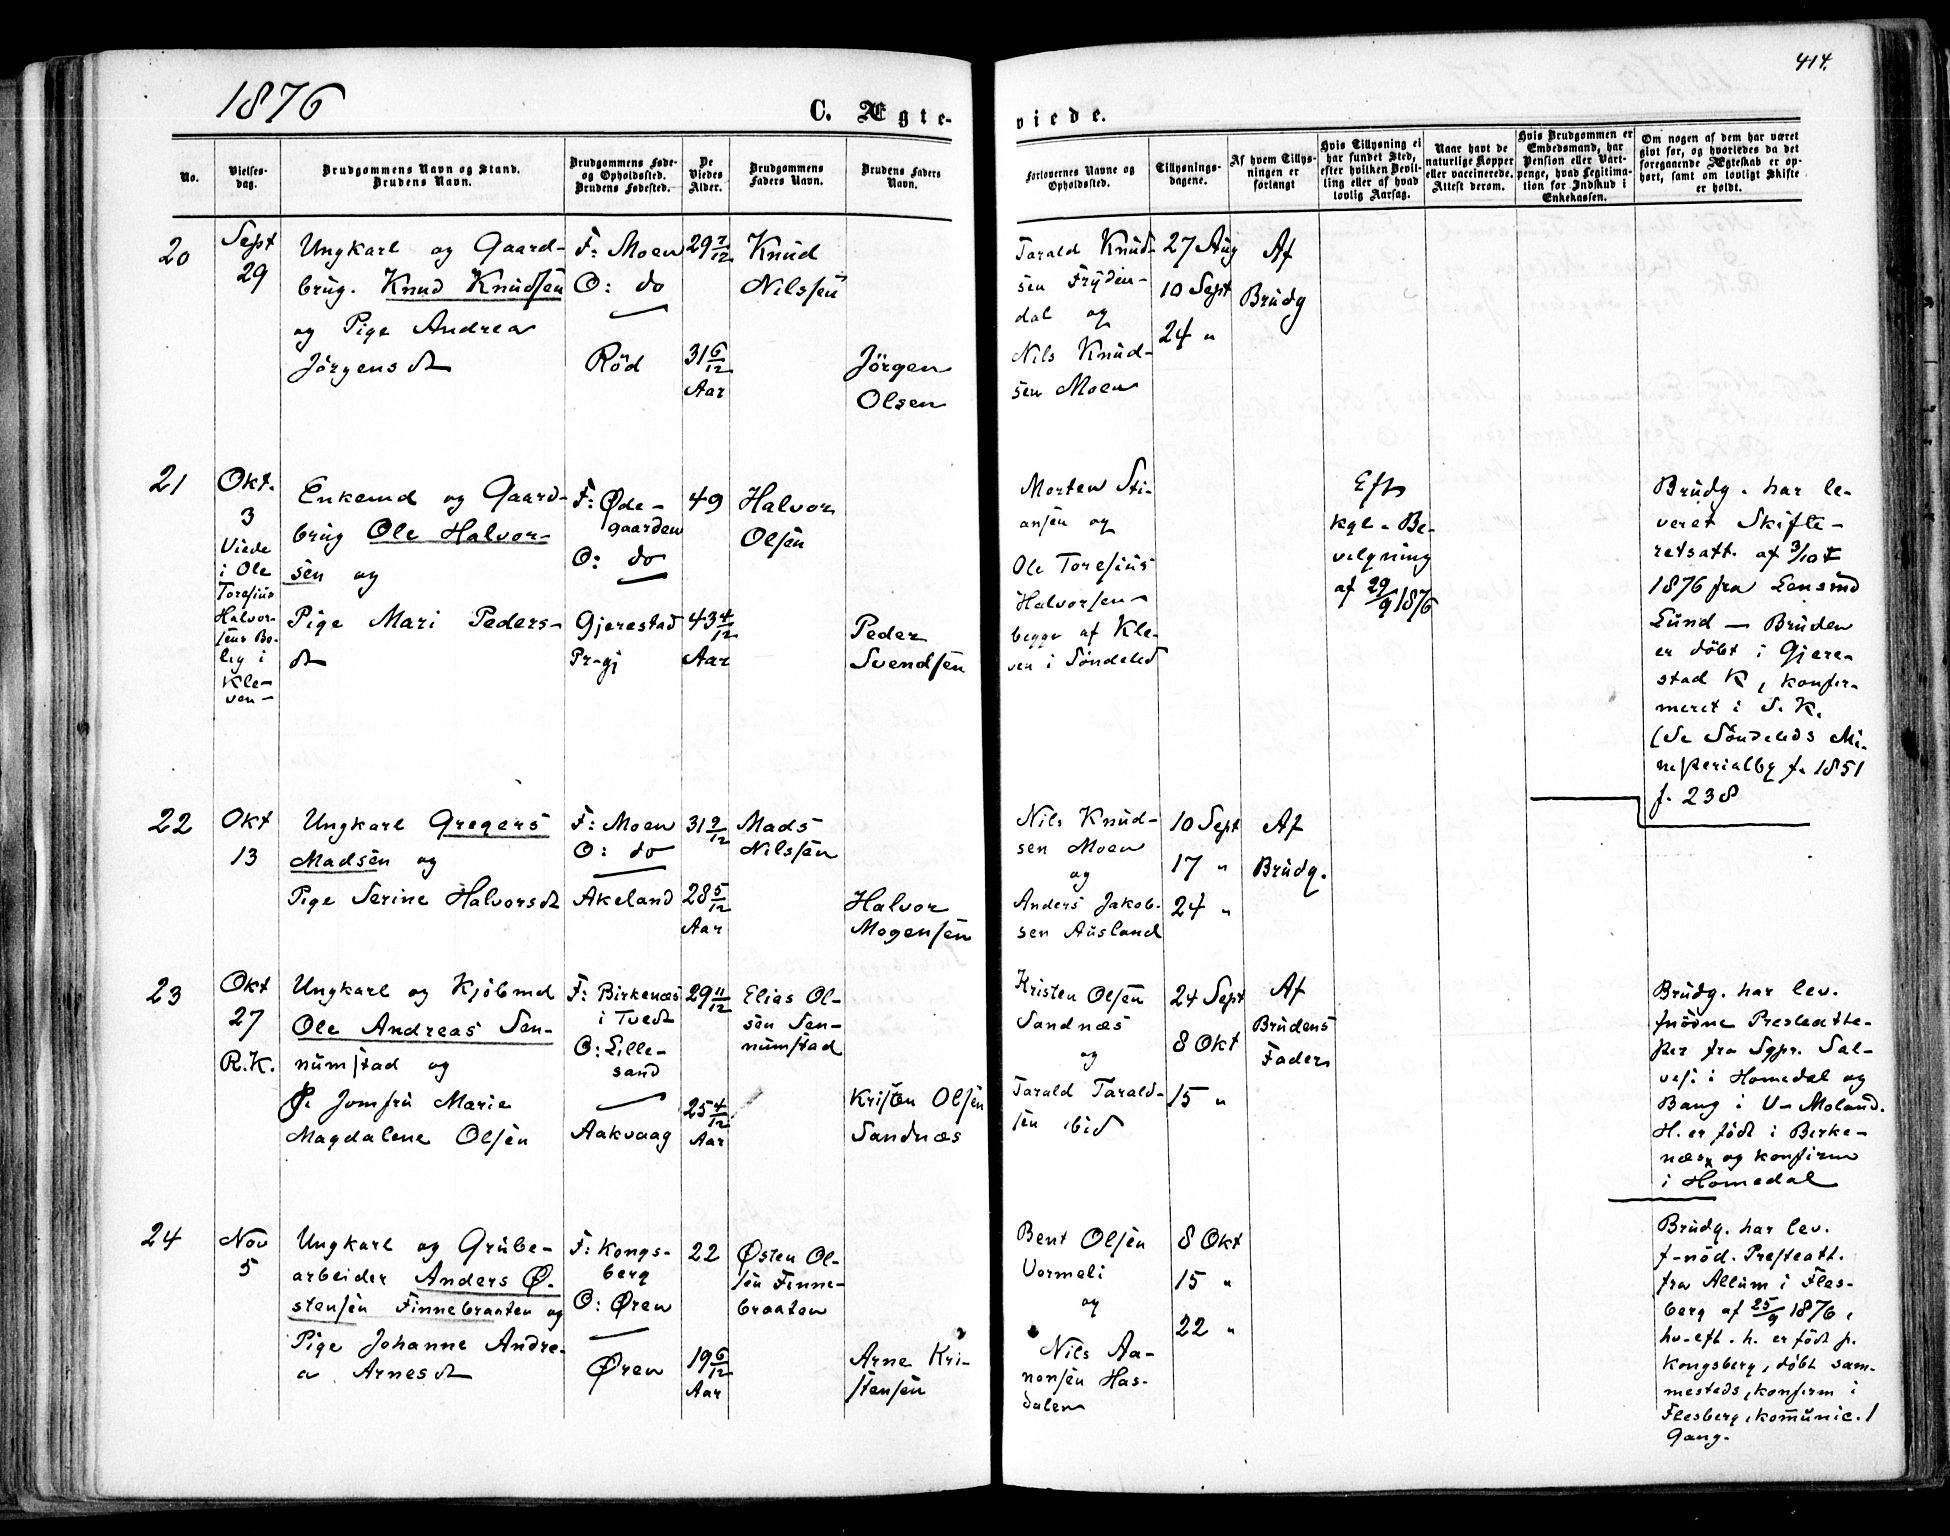 414.
1876
C. Ægte-
viede.
No.
Vielses-
dag.
Brudgommens Navn og Stand.
Brudens Navn.
Brudgommens Føde-
og Opholdssted.
Brudens Fødested.
De
Viedes
Alder.
Brudgommens
Faders Navn.
Brudens Faders
Navn.
Forlovernes Navne og
Opholdssted.
Tillysnings-
dagene.
Af hvem Tillys-
ningen er
forlangt
Hvis Tillysning ei
har fundet Sted,
efter hvilken Bevil-
ling eller af hvad
lovlig Aarsag.
Naar havt de
naturlige Kopper
eller vaccinerede.
Attest derom.
Hvis Brudgommen er
Embedsmand, har
Pension eller Vart-
penge, hvad Legitima-
tion for Indskud i
Enkekassen.
Om nogen af dem har været
givt før, og hvorledes da det
foregaaende Ægteskab er op-
hørt, samt om lovligt Skifte
er holdt.
20
Sept
29
Ungkarl og Gaard-
brug. Knud Knudsen
og Pige Andrea
Jörgensdt
F: Moen
O: do
Röd
29 7/12
31 6/12
Aar
Knud
Nilssen
Jörgen
Olsen
Tarald Knud-
sen Fryden-
dal og
Nils Knud-
sen Moen
27 Aug
10 Sept
24 "
Af
Brudg
21
Okt.
3
Viede
i Ole
Toresius
Halvor-
sens Bo-
lig i
Kle-
ven-
Enkemd og Gaard-
brug Ole Halvor-
sen og
Pige Mari Peders-
dt
F: Øde-
gaarden
O: do
Gjerestad
Pr-gj
49
43 4/12
Aar
Halvor
Olsen
Peder
Svendsen
Morten Sti-
ansen og
Ole Toresius
Halvorsen-
begge af Kle-
ven i Söndeled
Eft
kgl. Be-
vilgning
af 29/9 1876
Brudg. har le-
veret Skifte-
retsatt. af 3/10
1876 fra Lensmd
Lund - Bruden
er döbt i Gjere-
stad K, konfir-
meret i S. K.
(Se Söndeleds Mi-
nisterialbg f. 1851
f. 238
22
Okt
13
Ungkarl Gregers
Madsen og
Pige Serine Halvorsdt
F: Moen
O: do
Akeland
31 9/12
28 5/12
Aar
Mads
Nilssen
Halvor
Mogensen
Nils Knud-
sen Moen
og
Anders Jakob-
sen Ausland
10 Sept
17 "
24 "
Af
Brudg.
23
Okt
27
R.K.
Ungkarl og Kjöbmd
Ole Andreas Sen-
numstad og
Jomfru Marie
Magdalene Olsen
F: Birkenæs
i Tvedt
O: Lille-
sand
Aakvaag
29 11/12
25 4/12
Aar
Elias Ol-
sen Sen-
numstad
Kristen Olsen
Sandnæs
Kristen Olsen
Sandnæs
og
Tarald Tarald-
sen ibid
24 Sept
8 Okt
15 "
Af
Brudens
Fader
Brudg. har lev.
fnödne Presteatte-
ster fra Sgpr. Sal-
vesi i Homedal og
Bang i V-Moland.
H. er födt i Birke-
næs og konfirm
i Homedal
24
Nov
5
Ungkarl og Grube-
arbeider Anders Ø-
stensen Finnebraaten og
Pige Johanne Andre-
a Arnesdt
F: Kongs-
berg
O: Øren
Øren
22
19 6/12
Aar
Østen Ol-
sen Finne-
braaten
Arne Kri-
stensen
Bent Olsen
Vormeli
og
Nils Aa-
nonsen Has-
dalen
8 Okt
15 "
22 "
Brudg. har lev.
f-nöd. Presteatt.
fra Allum i Fles-
berg af 25/9 1876,
hv-eft. h. er födt p.
Kongsberg, döbt sam-
mesteds, konfirm i
Flesberg, komunic. 1
Gang.